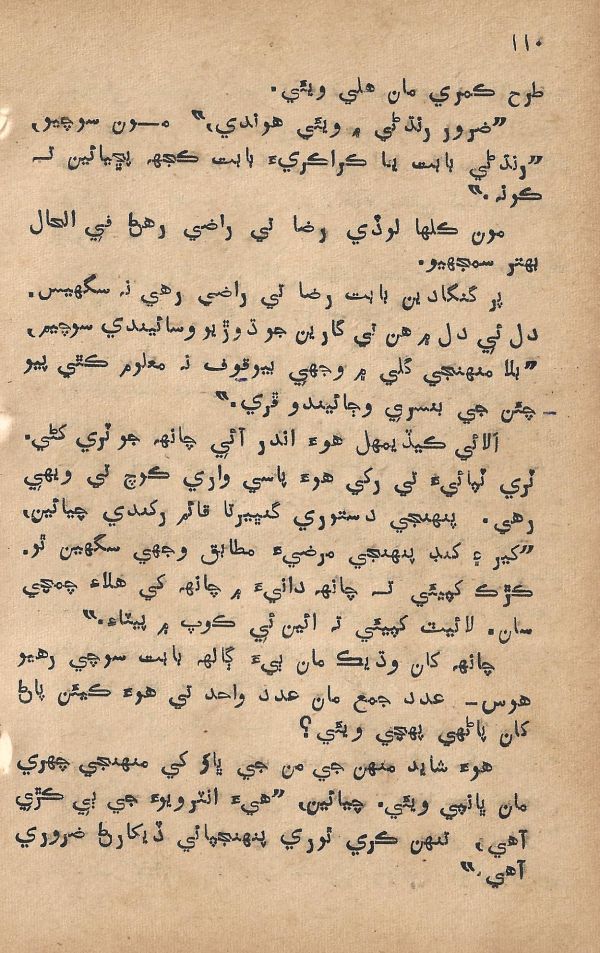 ١١٠
طرح ڪمري مان هلي ويئي.
”ضرور رنڌڻي ۾ ويئي هوندي،“ مـون سوچيو،
”رنڌڻي بابت يا ڪراڪريءَ بابت ڪجهہ پڇيائين تہ
ڪونہ.“
مون ڪلها لوڏي رضا تي راضي رهڻ في الحال
بهتر سمجهيو.
پر گنگادين بابت رضا تي راضي رهي نہ سگهيس.
دل ئي دل ۾ هن تي گارين جو ڏوڙيو وسائيندي سوچيم،
”بلا منهنجي ڳلي ۾ وجهي بيوقوف نہ معلوم ڪٿي پيو
چئن جي بنسري وڄائيندو ڦري.“
الائي ڪيڏيمهل هوءَ اندر آئي چانهہ جو ٽري کڻي.
ٽري ٽپائيءَ تي رکي هوءَ پاسي واري ڪوچ تي ويهي
رهي. پنهنجي دستوري گنڀيرتا قائم رکندي چيائين،
”کير ۽ کنڊ پنهنجي مرضيءَ مطابق وجهي سگهين ٿو.
ڪڙڪ کپيئي تہ چانهہ دانيءَ ۾ چانهہ کي هلاءِ چمچي
سان. لائيٽ کپيئي تہ ائين ئي ڪوپ ۾ پيٽاءِ.“
چانهہ کان وڌيڪ مان ٻيءَ ڳالهہ بابت سوچي رهيو
هوس – عدد جمع مان عدد واحد تي هوءَ ڪيئن پاڻ
کان پاڻهي پهچي ويئي؟
هوءَ شايد منهن جي من جي ڀاوَ کي منهنجي چهري
مان ڀانپي ويئي. چيائين، ”هيءَ انٽرويوءَ جي ٻي ڪڙي
آهي، تنهن ڪري ٿوري پنهنجپائي ڏيکارڻ ضروري
آهي.“